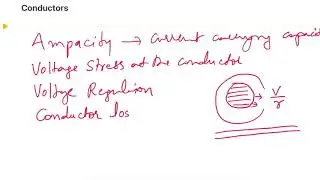 Conductors
Ampacity → Current carrying capacit
Voltage Stress at the conductor
Voltage Regulation
Conductor los
V
r